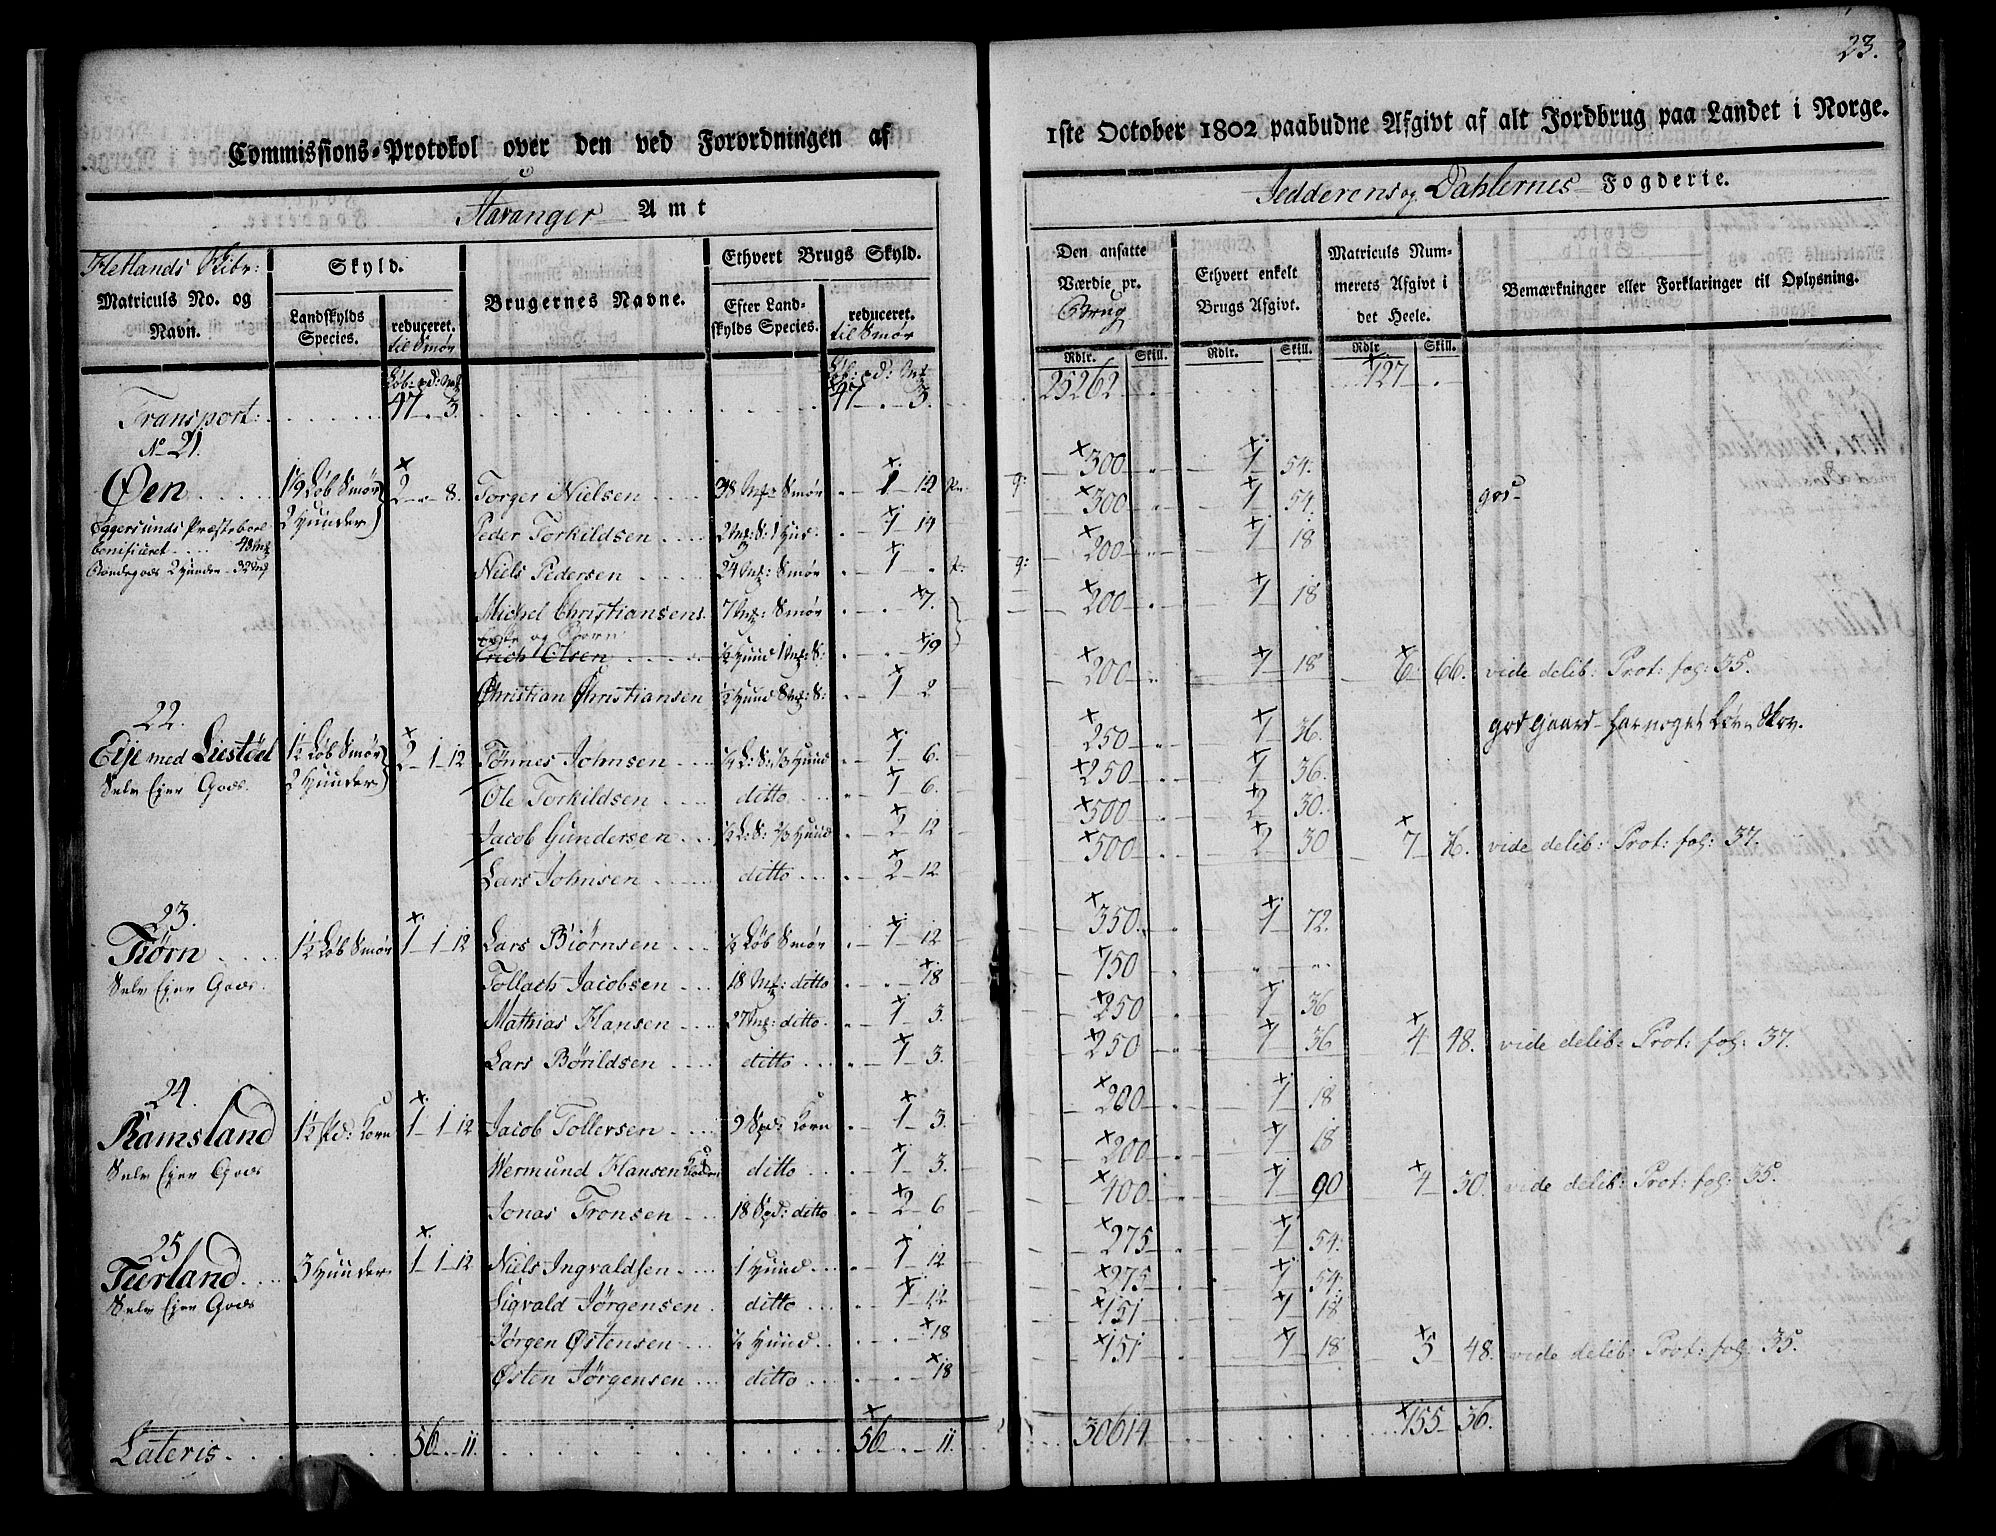 23.
Commissions-Protokol over den ved Forordningen af
1ste October 1802 paabudne Afgivt af alt Jordbrug paa Landet i Norge.
Stavanger Amt
Jedderens og Dahlernes Fogderie.
Hetlands Skibr:
Matriculs No. og Navn.
Skyld.
Landskylds Species.
reduceret. til Smør
Brugernes Navne.
Ethvert Brugs Skyld.
Efter Landskylds Species.
reduceret. til Smør
Den ansatte Værdie pr. Brug
Ethvert enkelt Brugs Afgivt.
Matriculs Nummerets Afgivt i det Heele.
Bemærkninger eller Forklaringer til Oplysning.
Løb: pd: Mk Løb: pd: Mk Rdlr. Skill. Rdlr. Skill. Rdlr. Skill.
Transport: 47 . 3. 47 . 3. 25262. 127
No 21.
Øen 1 1/9 Løb Smør 2 Huuder 2 - 8. Torger Nielsen 38 Mk Smør 1 12 300 1 54.
Eggersunds Præstebol Peder Torkildsen 2 Mk: S: 1 Hud 1 14 300 1 54. god
benificeret 48 Mk
Bøndegods 2 Huuder 32 Mk Niels Pedersen 24 Mk: Smør 1 . 200 1 18
Michel Christiansens 7 Mk: Smør 7. 200 1 18
Erich Olsen ½ Huud 1 Mk: S: 19
Christian Christiansen ½ Huud 8 Mk: S: 1 2 200 1 18 6 66. vide delib: Prot: fol: 35.
22.
Eije med Liestøel 1½ Løb Smør 2 Huuder 2 - 1 - 12 Tönnes Johnsen ¼ L: S: ⅓ Huud 1 6. 250 1 36. god Gaard har noget Løv Skov.
Selv Ejer Gods. Ole Torkildsen ditto 1 6. 250 1 36.
Jacob Gundersen ½ L: S: ⅔ Huud 2 12 500 2 30.
Lars Johnsen ditto 2 12 500 2 30 7 36. vide delib: Prot: fol: 37.
23.
Tiörn 1½ Løb Smør 1 - 1 - 12 Lars Biörnsen ½ Løb Smør 1 12 350. 1 72.
Selv Ejer Gods. Tollach Jacobsen 18 Mk: ditto 18 150
Mathias Hansen 27 Mk: ditto 1 3. 250 1 36
Lars Börildsen ditto 1 3. 250 1 36 4 48. vide delib: Prot: fol: 37.
24.
Ramsland 1½ Pd: Korn 1 - 1 - 12 Jacob Tollersen 9 Spd: Korn 1 3. 200 1 18
Selv Ejer Gods Wermund Hansen ditto 1 3. 200 1 18
Jonas Tronsen 18 Spd: ditto 2 6 400 1 90 4 30. vide delib: Prot: fol: 35.
25.
Tierland 3 Huuder 1 - 1 - 12 Niels Ingvaldsen 1 Huud 1 12 275 1 54.
Selv Ejer Gods Sigvald Jörgensen ditto 1 12 275 1 54.
Jörgen Østensen ½ Huud 18 151 1 18
Østen Jörgensen ditto 18 151 1 18 5 48. vide delib: Prot: fol: 35.
Lateris 56 . 11. 56 . 11. 30614 155 36.